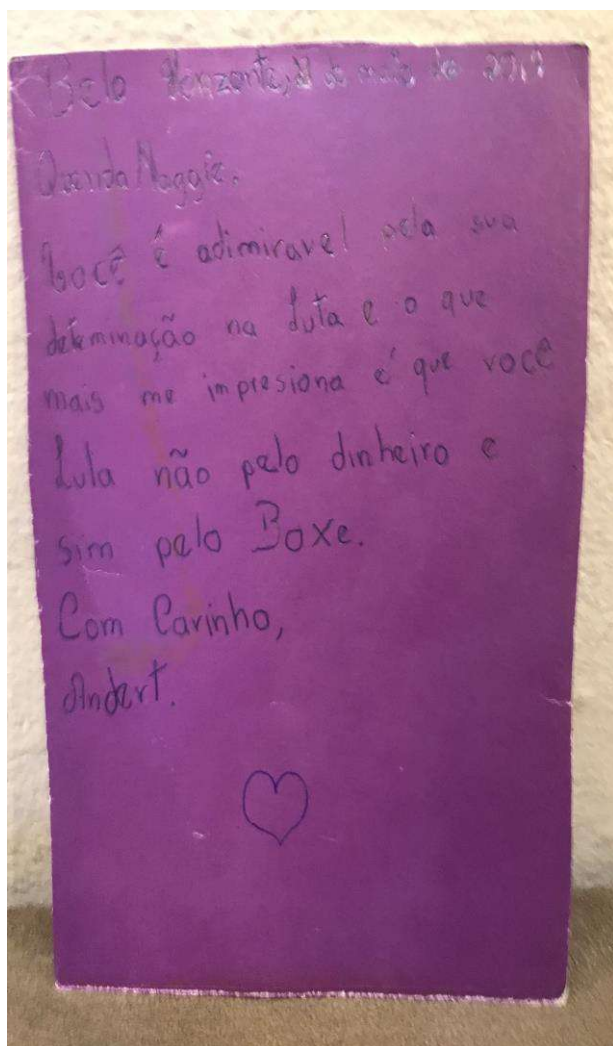 Belo Horizonte, de maio de
Querida Maggie,
Você é adimiravel pela sua
determinação na Luta e o que
mais me impresiona é que você
Luta não pelo dinheiro e
sim pelo Boxe.
Com Carinho,
Andert.